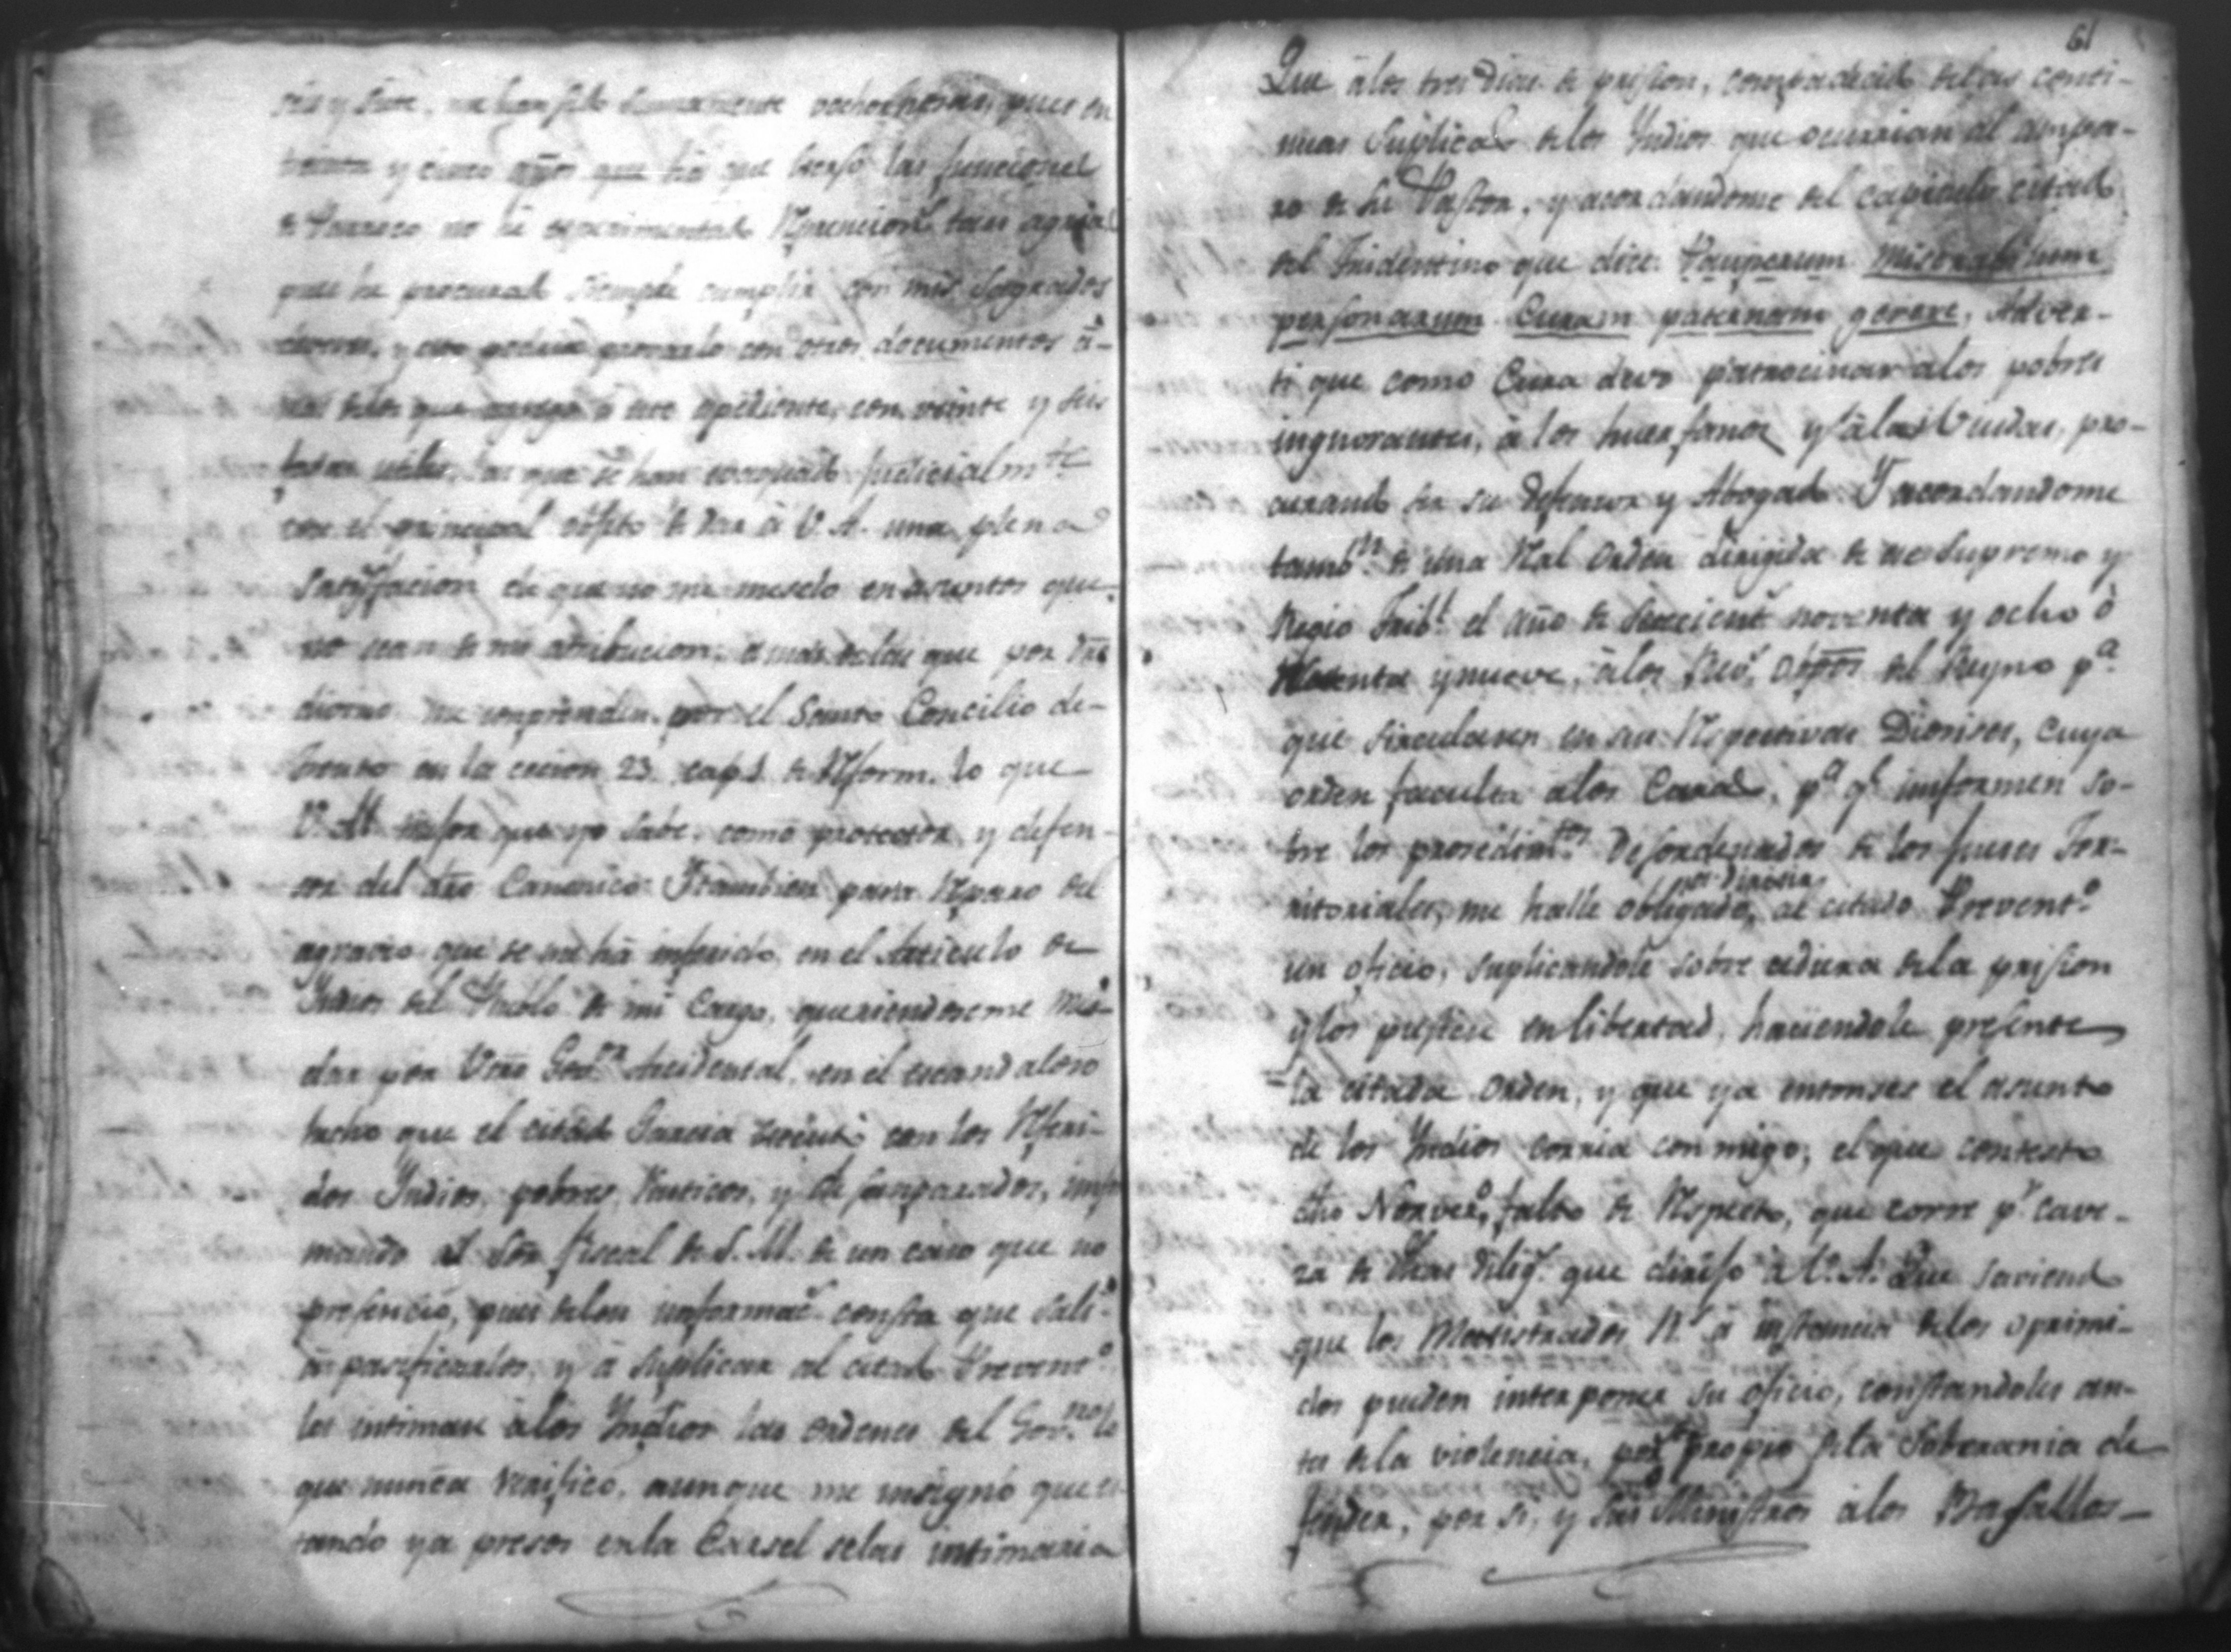 seis y siete, me han sido sumamente vochornosas, pues en
treinta y cinco años que há que exerso las funciones
de Parroco no hé experimentado Reprenciones tan agrias
que he procurado siempre cumplir con mis Sagrados
deveres, y esto podria provarlo con otros documentos á
mas delos que agrego á este expediente, con veinte y seis
foxas utiles, las que se han evaquado Judicialmte
con el principal obgeto de dar á V. A. una plena
Satisfacion de que no me mesclo en asuntos que
no sean de mi atribucion, á mas delas que por dro
divino me comprenden, por el Santo Concilio de
Trento en la cecion 23. cap 1 de Reform. lo que
V. A. mejor que yo sabe, como protector y defen-
sor del dro Canonico. Y tambien para Reparo del
agravio que se me há inferido, en el Articulo de
Yndios del Pueblo de mi Cargo, queriendoseme
dar por Vtro Govor Accidental, en el escandaloso
hecho que el citado Garcia con los Referi-
dos Yndios, pobres, Rusticos, y desamparados, infor
mando al Sor fiscal de S. M. de un caso que no
presencio, pues delas informacs consta que Salí
á pasificarlos, y á suplicar al citado Prevento
les intimase álos Yndios las ordenes del Govno lo
que nunca verificó, aunque me insignó que es-
tando ya presos enla Carsel selas intimaria
61
Que álos tres dias de prision, compadecido delas conti-
nuas Suplicas delos Yndios que ocurrian al ampa-
ro de su Pastor, y acordandome del capitulo citado
del Tridentino que dice: Pauperum miserabilium
personarum Curam paternam gerere, Adver-
tí que como Cura devo patrocinar alos pobres
ingnorantes, á los huerfanos y á las Viudas, pro-
curando ser su defensor y Abogado. Y acordandome
tambn de una Ral orden dirigida de ese Supremo y
Regio Tribl el año de setecients noventa y ocho ó
Noventa y nueve, álos Señs Obpos del Reyno pa
que sircularen en sus Respectivas Diosises, cuya
orden faculta alos Curas, pa qe informen so-
bre los prosedimtos desordenados de los Jueses Ter-
ritoriales, me halle obligado, por dirigir al citado Prevento
un oficio, suplicandole sobre cediera dela prision
y los pusiese en libertad, haciendole presente
la citada orden, y que ya entonses el asunto
de los Yndios corria con migo; el que contesto
dho Norver, falto de Respecto, que corre pr cave-
ra de las diligs que dirijo á V. A. Que saviendo
que los Magistrados Rs á instancia delos oprimi-
dos pueden interponer su oficio, constandoles an-
tes dela violencia, por propio dela Soberania de
fender, por si, y sus Ministros álos Basallos